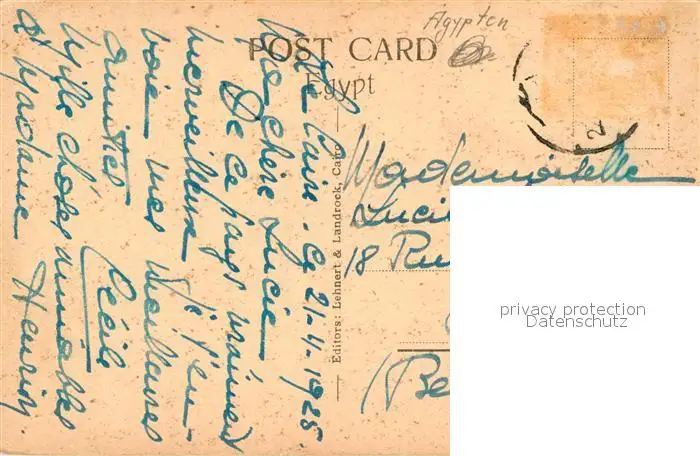 Agypten
POST CARD
Egypt
Le Caire, Ce 21-4-1928.
Ma chère Lucie
De ce pays vraiment
merveilleux je t'en-
voie mes meilleures
amitiés
Cécile
Mille choses aimables
à Madame Henrion
Editors: Lehnert & Landrock, Cairo
Mademoiselle
Luci
18 Ru
(Be
privacy protection
Datenschutz